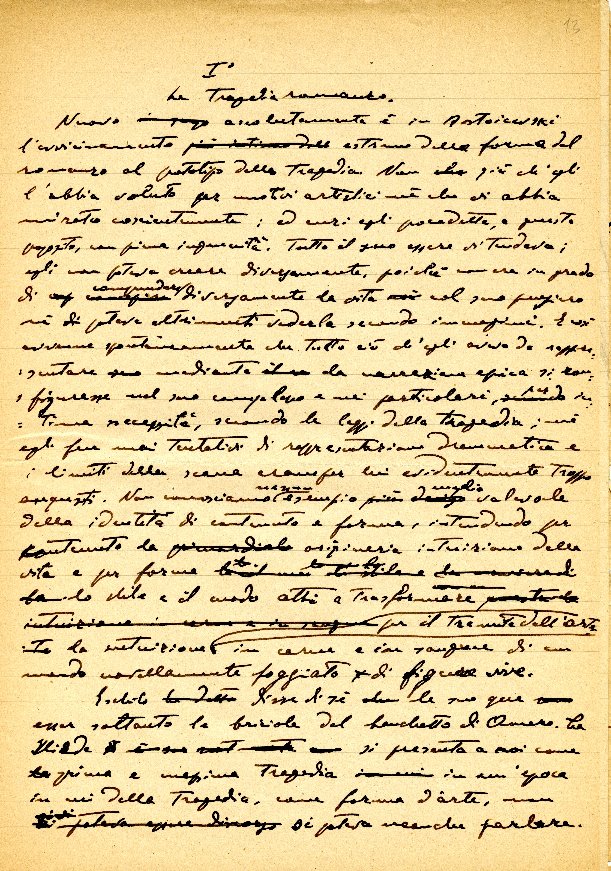 13
I°
La tragedia romanzo.
Nuovo assolutamente è in Dostoiewski
l'avvicinamento estremo della forma del
romanzo al prototipo della tragedia. Non già ch'egli
l'abbia voluto per motivi artistici nè che vi abbia
mirato coscientemente; ed anzi egli procedette, a questo
proposito, con piena ingenuità. Tutto il suo essere vi tendeva;
egli non poteva creare diversamente, poichè non era in grado
di comprendere diversamente la vita col suo pensiero
nè di poterla altrimenti vederla secondo immagini. E così
avvenne spontaneamente che tutto ciò ch'egli aveva da rappre-
sentare mediante la narrazione epica si con-
figurasse nel suo complesso e nei particolari, per in-
tima necessità, secondo le leggi della tragedia; nè
egli fece mai tentativi di rappresentazione drammatica e
i limiti della scena eran per lui evidentemente troppo
angusti. Non conosciamo nessun esempio meglio valevole
della identità di contenuto e forma, intendendo per
contenuto la originaria intuizione della
vita e per forma lo stile e il modo atti a trasformare
per il tramite dell'arte
la intuizione in carne e in sangue di un
mondo novellamente foggiato di figure vive.
Eschilo disse di sè che le sue opere
eran soltanto le briciole del banchetto di Omero. La
Iliade si presenta a noi come
prima e massima tragedia in un'epoca
in cui della tragedia, come forma d'arte, non
si poteva neanche parlare.